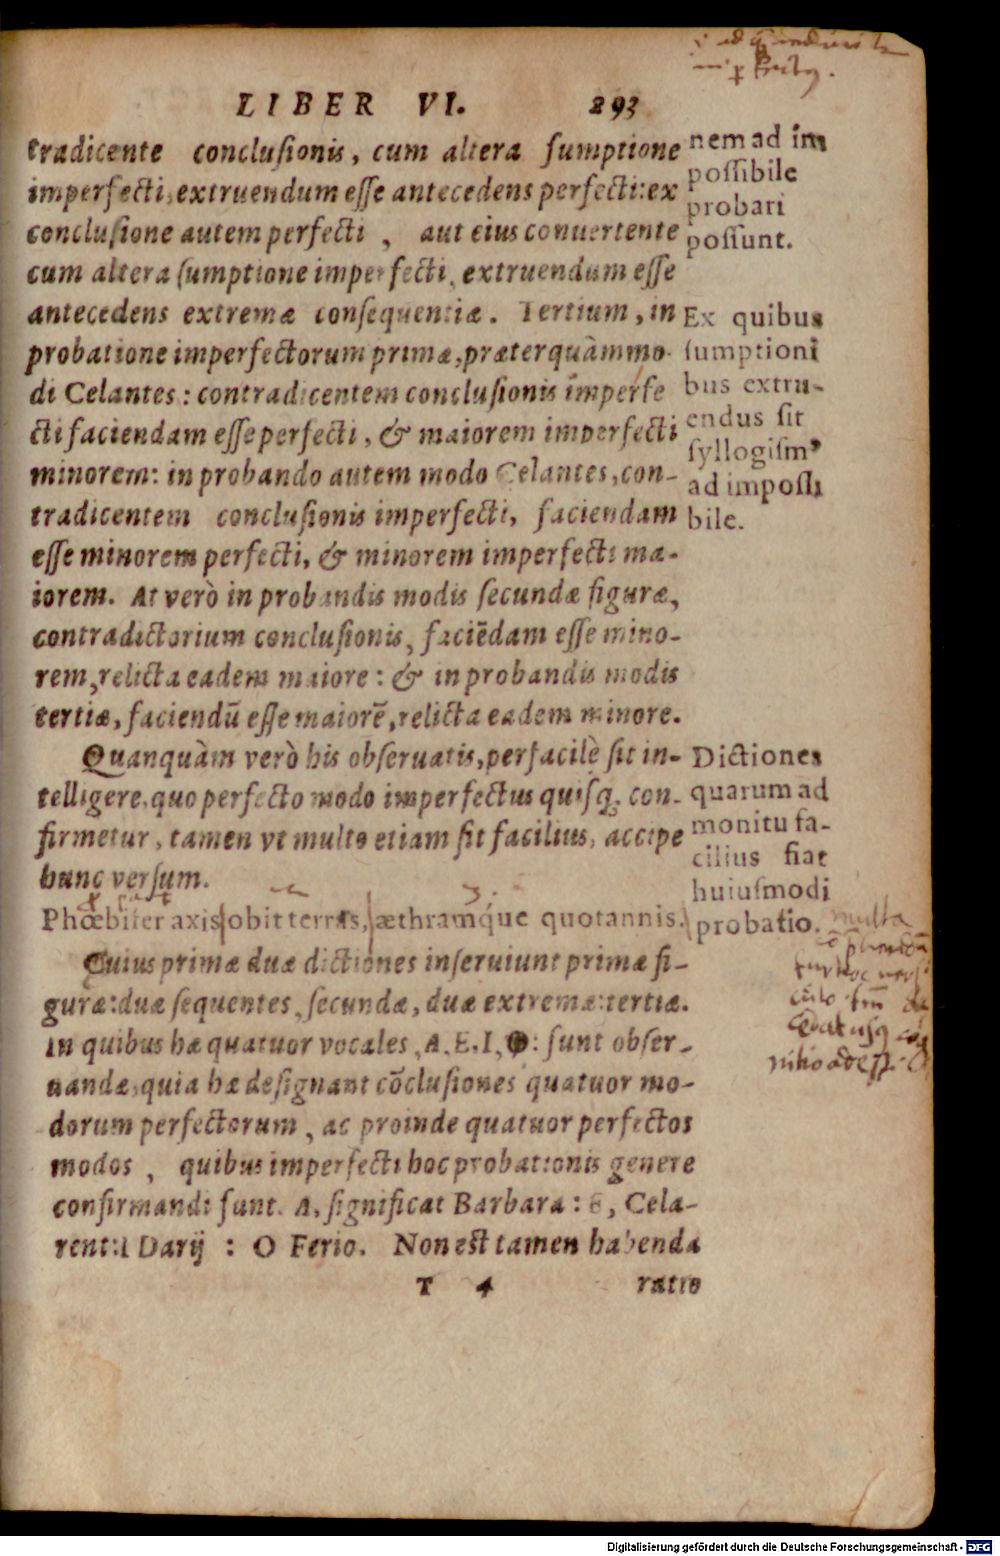 LIBER VI. 293
tradicente conclusionis, cum altera sumptione
imperfecti, extruendum esse antecedens perfecti: ex
conclusione autem perfecti, aut eius conuertente
cum altera sumptione imperfecti, extruendum esse
antecedens extremæ consequentiæ. Tertium, in
probatione imperfectorum primæ, præterquàm mo-
di Celantes: contradicentem conclusionis imperfe
cti faciendam esse perfecti, & maiorem imperfecti
minorem: in probando autem modo Celantes, con-
tradicentem conclusionis imperfecti, faciendam
esse minorem perfecti, & minorem imperfecti ma-
iorem. At verò in probandis modis secundæ figuræ,
contradictorium conclusionis, faciẽdam esse mino-
rem, relicta eadem maiore: & in probandis modis
tertiæ, faciendũ esse maiorẽ, relicta eadem minore.
nem ad im
possibile
probari
possunt.
Ex quibus
sumptioni
bus extru-
endus sit
syllogismꝰ
ad impossi
bile.
Quanquàm verò his obseruatis, perfacilè sit in-
telligere, quo perfecto modo imperfectus quisq; con-
firmetur, tamen vt multo etiam fit facilius, accipe
hunc versum.
Phœbifer axis obit terras, æthramq́ue quotannis.
Cuius primæ duæ dictiones inseruiunt primæ fi-
guræ: duæ sequentes, secundæ, duæ extremæ: tertiæ.
In quibus hæ quatuor vocales, A, E, I, O: sunt obser-
uandæ, quia hæ designant cõclusiones quatuor mo-
dorum perfectorum, ac proinde quatuor perfectos
modos, quibus imperfecti hoc probationis genere
confirmandi sunt. A, significat Barbara: E, Cela-
rent: I Darij : O Ferio. Non est tamen habenda
Dictiones
quarum ad
monitu fa-
cilius fiat
huiusmodi
probatio.
multa
T 4 ratio
Digitalisierung gefördert durch die Deutsche Forschungsgemeinschaft - DFG